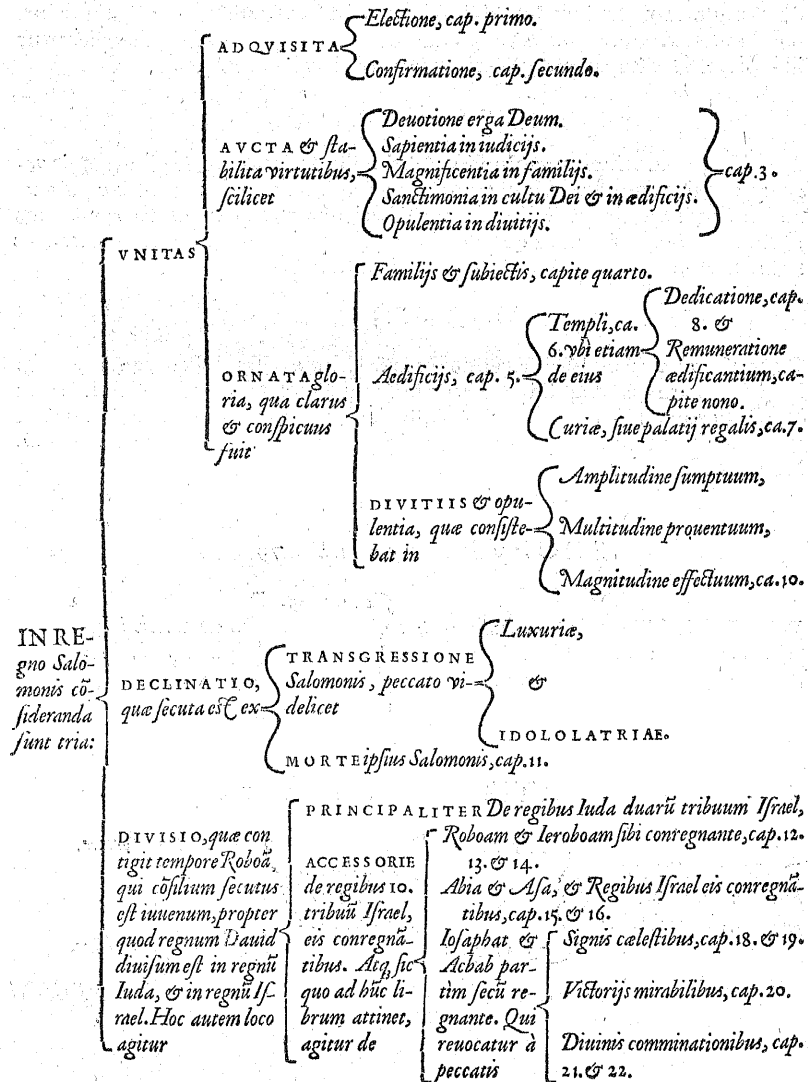 IN RE-
gno Salo-
monis cõ-
ſideranda
ſunt tria:
VNITAS
ADQVISITA
Electione, cap. primo.
Confirmatione, cap. ſecundo.
AVCTA & ſta-
bilita virtutibus,
ſcilicet
Deuotione erga Deum.
Sapientia in iudicijs.
Magnificentia in familijs.
Sanctimonia in cultu Dei & in ædificijs.
Opulentia in diuitijs.
cap. 3.
ORNATA glo-
ria, qua clarus
& conſpicuus
fuit
Familijs & ſubiectis, capite quarto.
Aedificijs, cap. 5.
Templi, ca.
6. vbi etiam
de eius
Dedicatione, cap.
8. &
Remuneratione
ædificantium, ca-
pite nono.
Curiæ, ſiue palatij regalis, ca. 7.
DIVITIIS & opu-
lentia, quæ conſiſte-
bat in
Amplitudine ſumptuum,
Multitudine prouentuum,
Magnitudine effectuum, ca. 10.
DECLINATIO,
quæ ſecuta eſt ex
TRANSGRESSIONE
Salomonis, peccato vi-
delicet
Luxuriæ,
&
IDOLOLATRIAE.
MORTE ipſius Salomonis, cap. 11.
DIVISIO, quæ con
tigit tempore Roboã,
qui cõſilium ſecutus
eſt iuuenum, propter
quod regnum Dauid
diuiſum eſt in regnũ
Iuda, & in regnũ Iſ-
rael. Hoc autem loco
agitur
PRINCIPALITER De regibus Iuda duarũ tribuum Iſrael,
ACCESSORIE
de regibus 10.
tribuũ Iſrael,
eis conregnã-
tibus. Atq, ſic
quo ad hũc li-
brum attinet,
agitur de
Roboam & Ieroboam ſibi conregnante, cap. 12.
13. & 14.
Abia & Aſa, & Regibus Iſrael eis conregnã-
tibus, cap. 15. & 16.
Ioſaphat &
Achab par-
tim ſecũ re-
gnante. Qui
reuocatur à
peccatis
Signis cæleſtibus, cap. 18. & 19.
Victorijs mirabilibus, cap. 20.
Diuinis comminationibus, cap.
21. & 22.